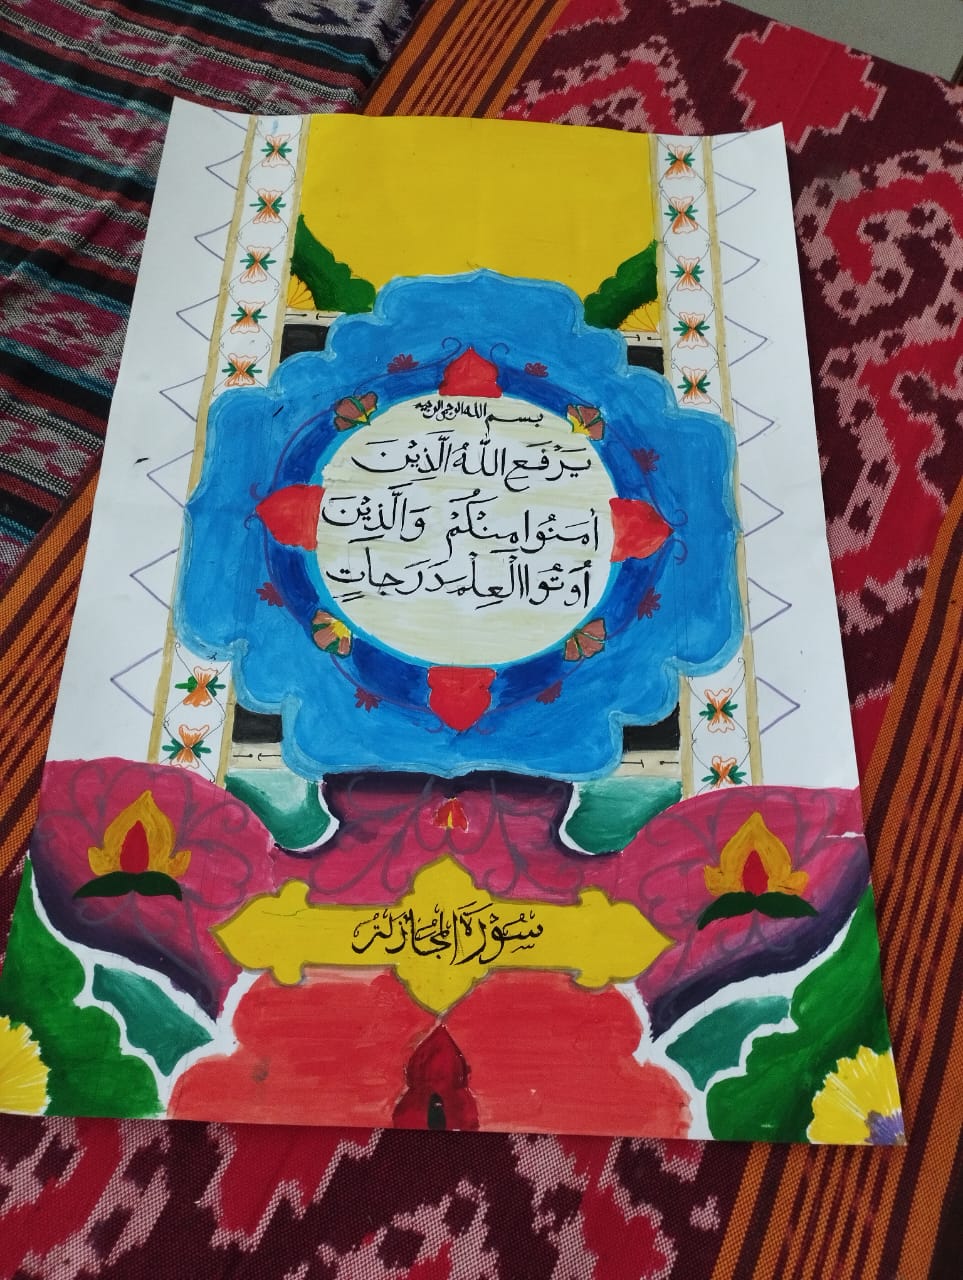 بسم الله الرحمن الرحيم
يَرْفَعِ اللّٰهُ الَّذِيْنَ
اٰمَنُوْا مِنْكُمْ وَالَّذِيْنَ
اُوْتُوا الْعِلْمَ دَرَجَاتٍ
سُوْرَةَ المُجَازلة